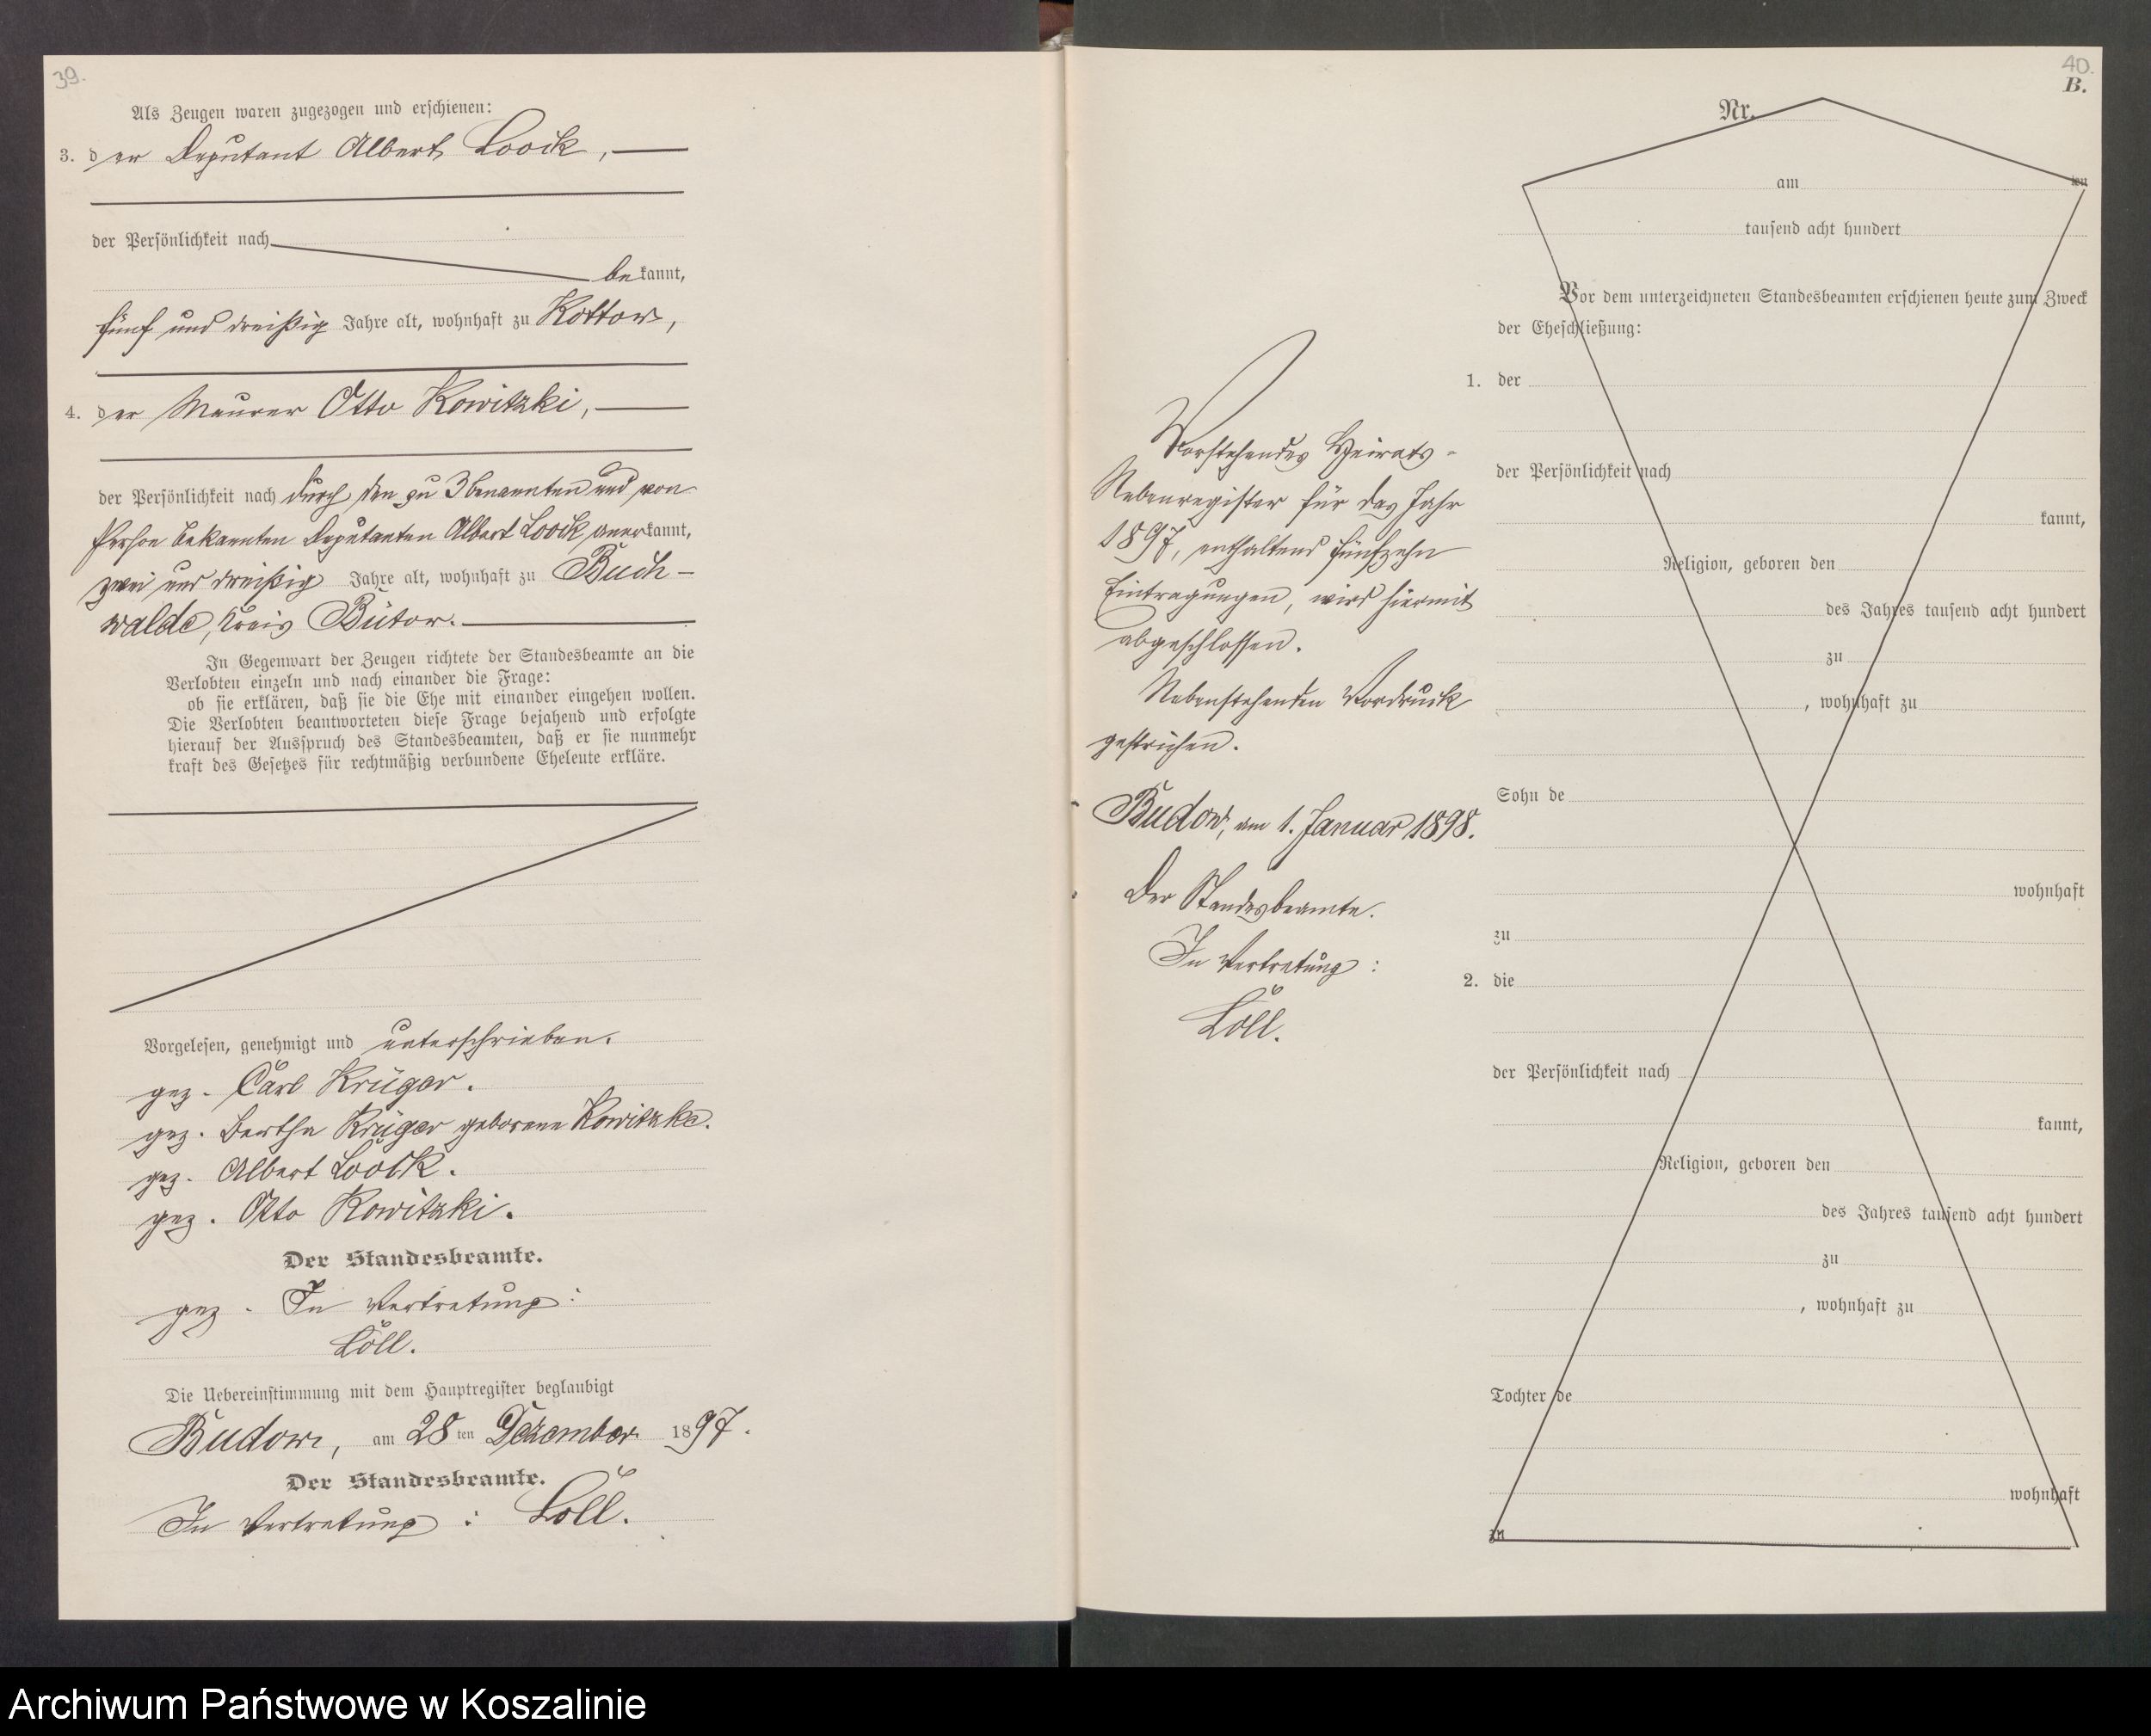 39.
Als Zeugen waren zugezogen und erschienen:
3. der Deputant Albert Loock,
der Persönlichkeit nach
bekannt,
fünf und dreißig Jahre alt, wohnhaft zu Kottow,
4. der Maurer Otto Kowitzki,
der Persönlichkeit nach durch den zu 3 benannten und von
Person bekannten Deputanten Albert Loock anerkannt,
zwei und dreißig Jahre alt, wohnhaft zu Buch-
walde, Kreis Bütow.
In Gegenwart der Zeugen richtete der Standesbeamte an die
Verlobten einzeln und nach einander die Frage:
ob sie erklären, daß sie die Ehe mit einander eingehen wollen.
Die Verlobten beantworteten diese Frage bejahend und erfolgte
hierauf der Ausspruch des Standesbeamten, daß er sie nunmehr
kraft des Gesetzes für rechtmäßig verbundene Eheleute erkläre.
Vorgelesen, genehmigt und unterschrieben.
gez. Carl Krüger.
gez. Bertha Krüger geborene Kowitzke.
gez. Albert Loock.
gez. Otto Kowitzki.
Der Standesbeamte.
gez. In Vertretung:
Löll.
Die Uebereinstimmung mit dem Hauptregister beglaubigt
Budow, am 28ten Dezember 1897.
Der Standesbeamte.
In Vertretung: Löll.
Vorstehendes Heirats-
Nebenregister für das Jahr
1897, enthaltend fünfzehn
Eintragungen, wird hiermit
abgeschlossen.
Nebenstehenden Vordruck
gestrichen.
Budow, am 1. Januar 1898.
Der Standesbeamte.
In Vertretung:
Löll.
40.
B.
Nr.
am ten
tausend acht hundert
Vor dem unterzeichneten Standesbeamten erschienen heute zum Zweck
der Eheschließung:
1. der
der Persönlichkeit nach
kannt,
Religion, geboren den
des Jahres tausend acht hundert
zu
, wohnhaft zu
Sohn de
wohnhaft
zu
2. die
der Persönlichkeit nach
kannt,
Religion, geboren den
des Jahres tausend acht hundert
zu
, wohnhaft zu
Tochter de
wohnhaft
zu
Archiwum Państwowe w Koszalinie